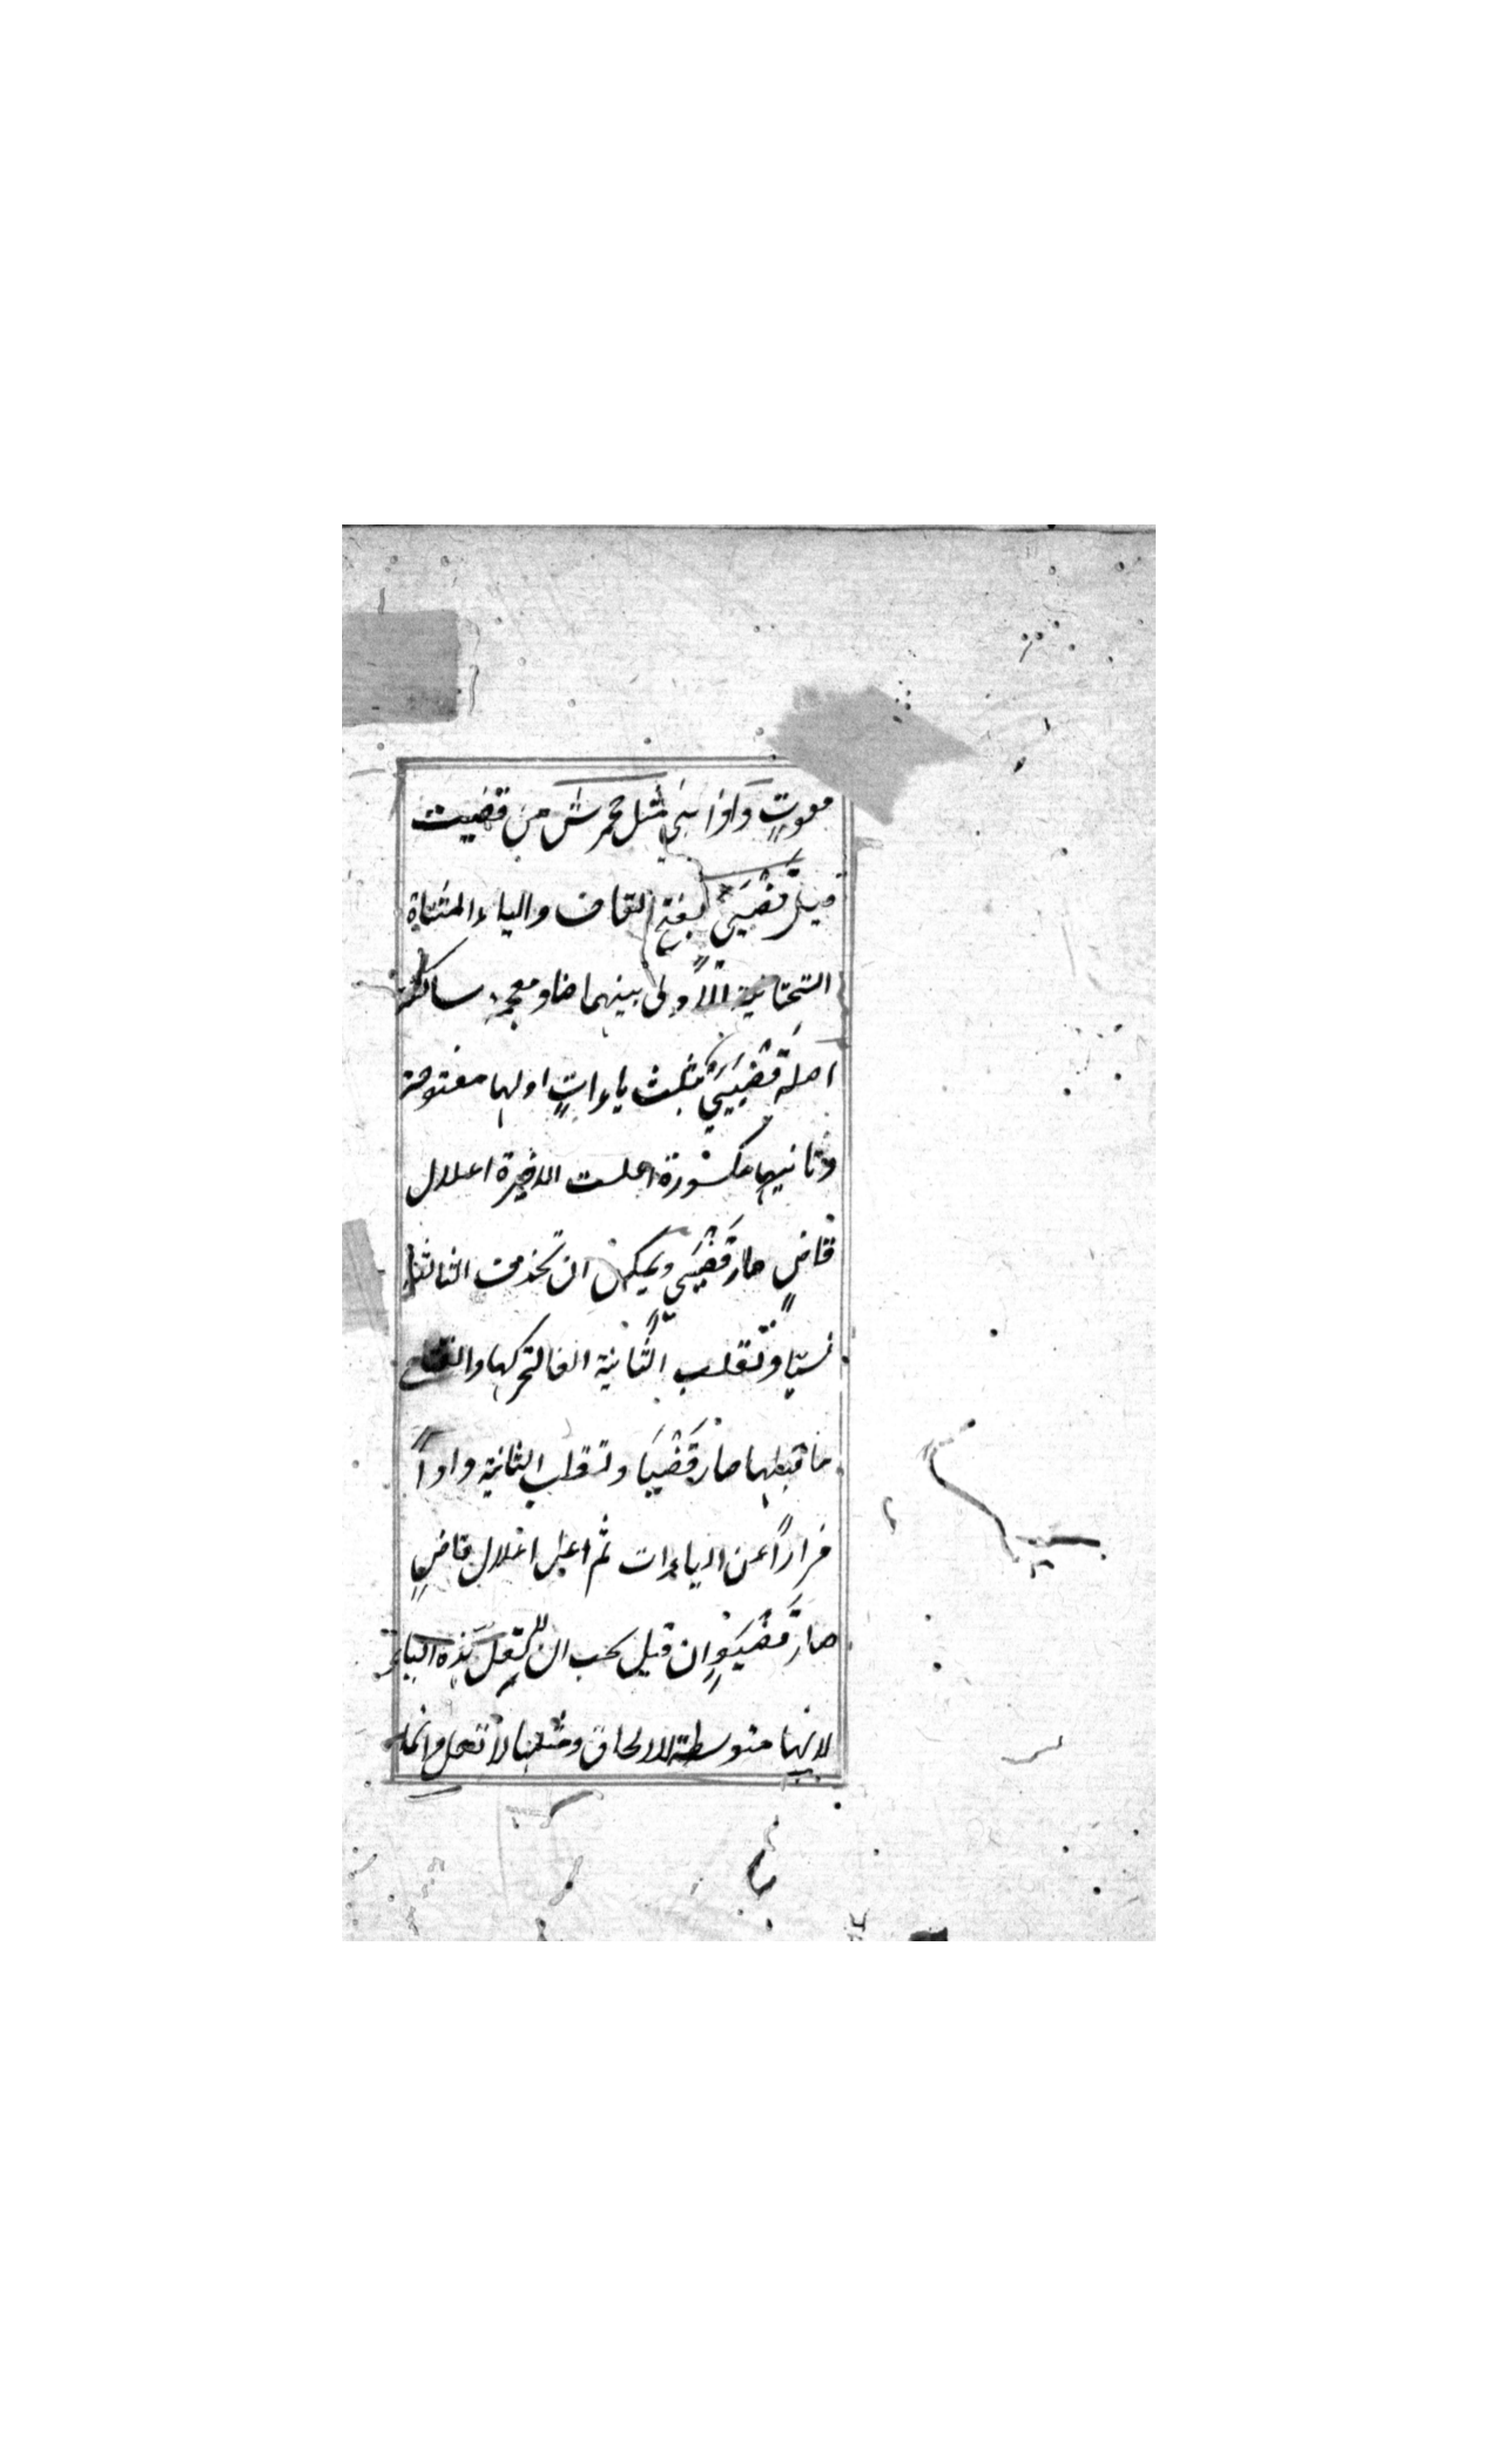 معوتٍ واذا بني مثل جحمرش من قضيت
قيل قَضْيَيٍ بفتح القاف والياء المثناة
التحتانية الأولى بينهما ضاد معجمة ساكنة
اصله قَضْيَيِيٌ بثلث ياءاتٍ اولها مفتوحة
وثانيها مكسورة اعلت الاخيرة اعلال
قاضٍ صار قَضْيَيٍ ويمكن ان تحذف الثالثة
نسيًا وتقلب الثانية الفا لتحركها وانفتاح
ما قبلها صار قَضْيَا وتقلب الثانية واواً
فراراً عن الياءات ثم اعل اعلال قاضٍ
صار قَضْيَوٍ وان قيل يجب ان لا تعل هذه الياء
لانها متوسطة للالحاق ومثلها لا تعل وانما